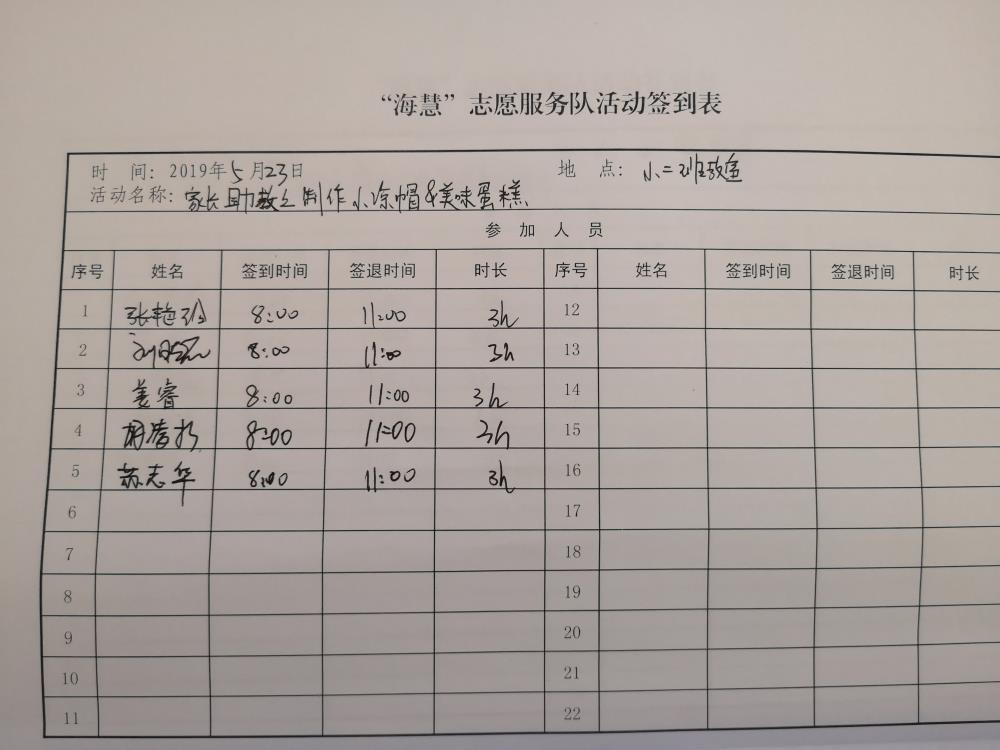 “海慧”志愿服务队活动签到表
时 间：2019年5月23日 地 点：小二班教室
活动名称：家长助教之制作小凉帽&美味蛋糕
参 加 人 员
序号 姓名 签到时间 签退时间 时长 序号 姓名 签到时间 签退时间 时长
1 张艳玲 8:00 11:00 3h 12
2 8:00 11:00 3h 13
3 姜睿 8:00 11:00 3h 14
4 8:00 11:00 3h 15
5 苏志华 8:00 11:00 3h 16
6 17
7 18
8 19
9 20
10 21
11 22